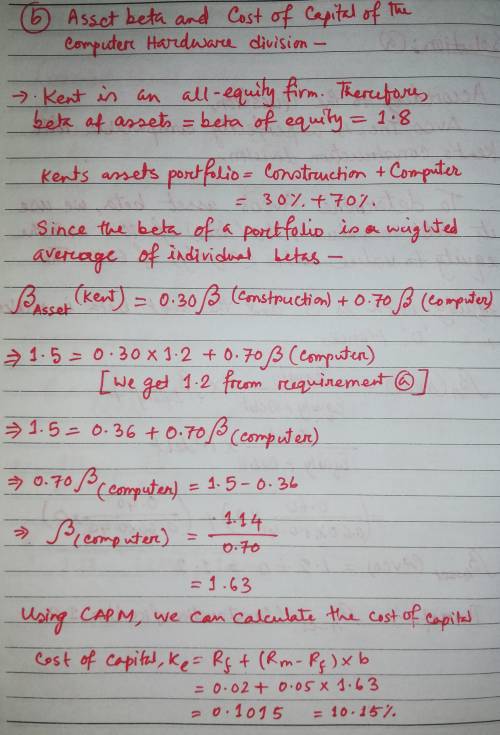 ⓑ Asset beta and Cost of Capital of the
Computer Hardware division —
→ Kent is an all-equity firm. Therefore,
beta of assets = beta of equity = 1.8
Kents assets portfolio = Construction + Computer
= 30% + 70%
Since the beta of a portfolio is a weighted
average of individual betas —
β Asset (Kent) = 0.30 β (Construction) + 0.70 β (Computer)
⇒ 1.5 = 0.30 × 1.2 + 0.70 β (Computer)
[We get 1.2 from requirement ⓐ]
⇒ 1.5 = 0.36 + 0.70 β (computer)
⇒ 0.70 β (computer) = 1.5 − 0.36
⇒ β (computer) = 1.14 / 0.70
= 1.63
Using CAPM, we can calculate the cost of capital
Cost of capital, Ke = Rf + (Rm − Rf) × b
= 0.02 + 0.05 × 1.63
= 0.1015 = 10.15%